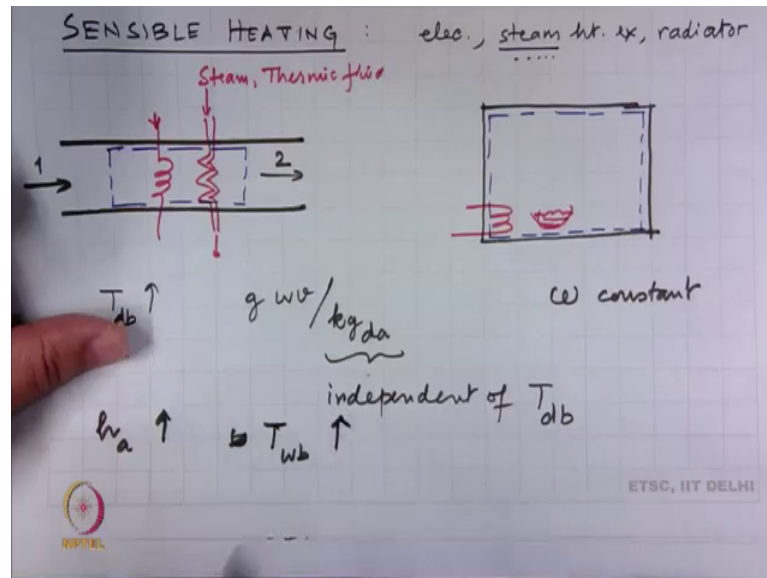 SENSIBLE HEATING : elec., steam ht. ex, radiator
Steam, Thermic fluid
1
2
T_db ↑ g wv/kg_da
ω constant
independent of T_db
h_a ↑ T_wb ↑
ETSC, IIT DELHI
NPTEL